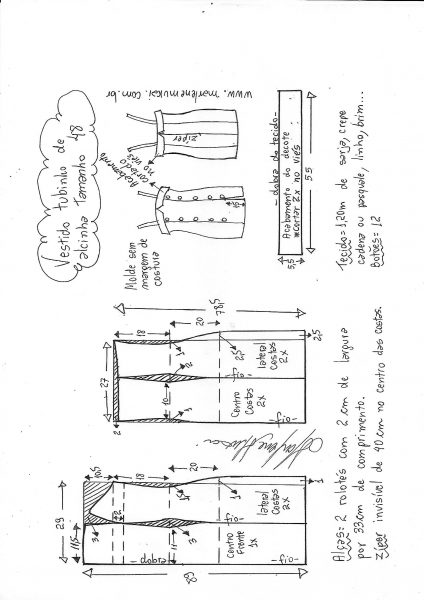 Vestido tubinho de
alcinha Tamanho 48
www.marlenemukai.com.br
Molde sem
margem de
costura
Acabamento
cortado
no viés
zíper
15
- dobra do tecido -
Acabamento do decote
*cortar 2x no viés
55
5,5
Tecido = 1,20m de sarja, crepe
cadena ou pasquale, linho, brim...
Botões = 12
29
11,5
10,5
18
20
2
3
3
11
1
1
1
80
dobra
fio
fio
Centro
Frente
1x
lateral
Costas
2x
27
2
18
20
78,5
10
1
2
3
2,5
2,5
fio
fio
Centro
Costas
2x
lateral
Costas
2x
Alças = 2 rolotês com 2 cm de largura
por 33cm de comprimento.
zíper invisível de 40cm no centro das costas.